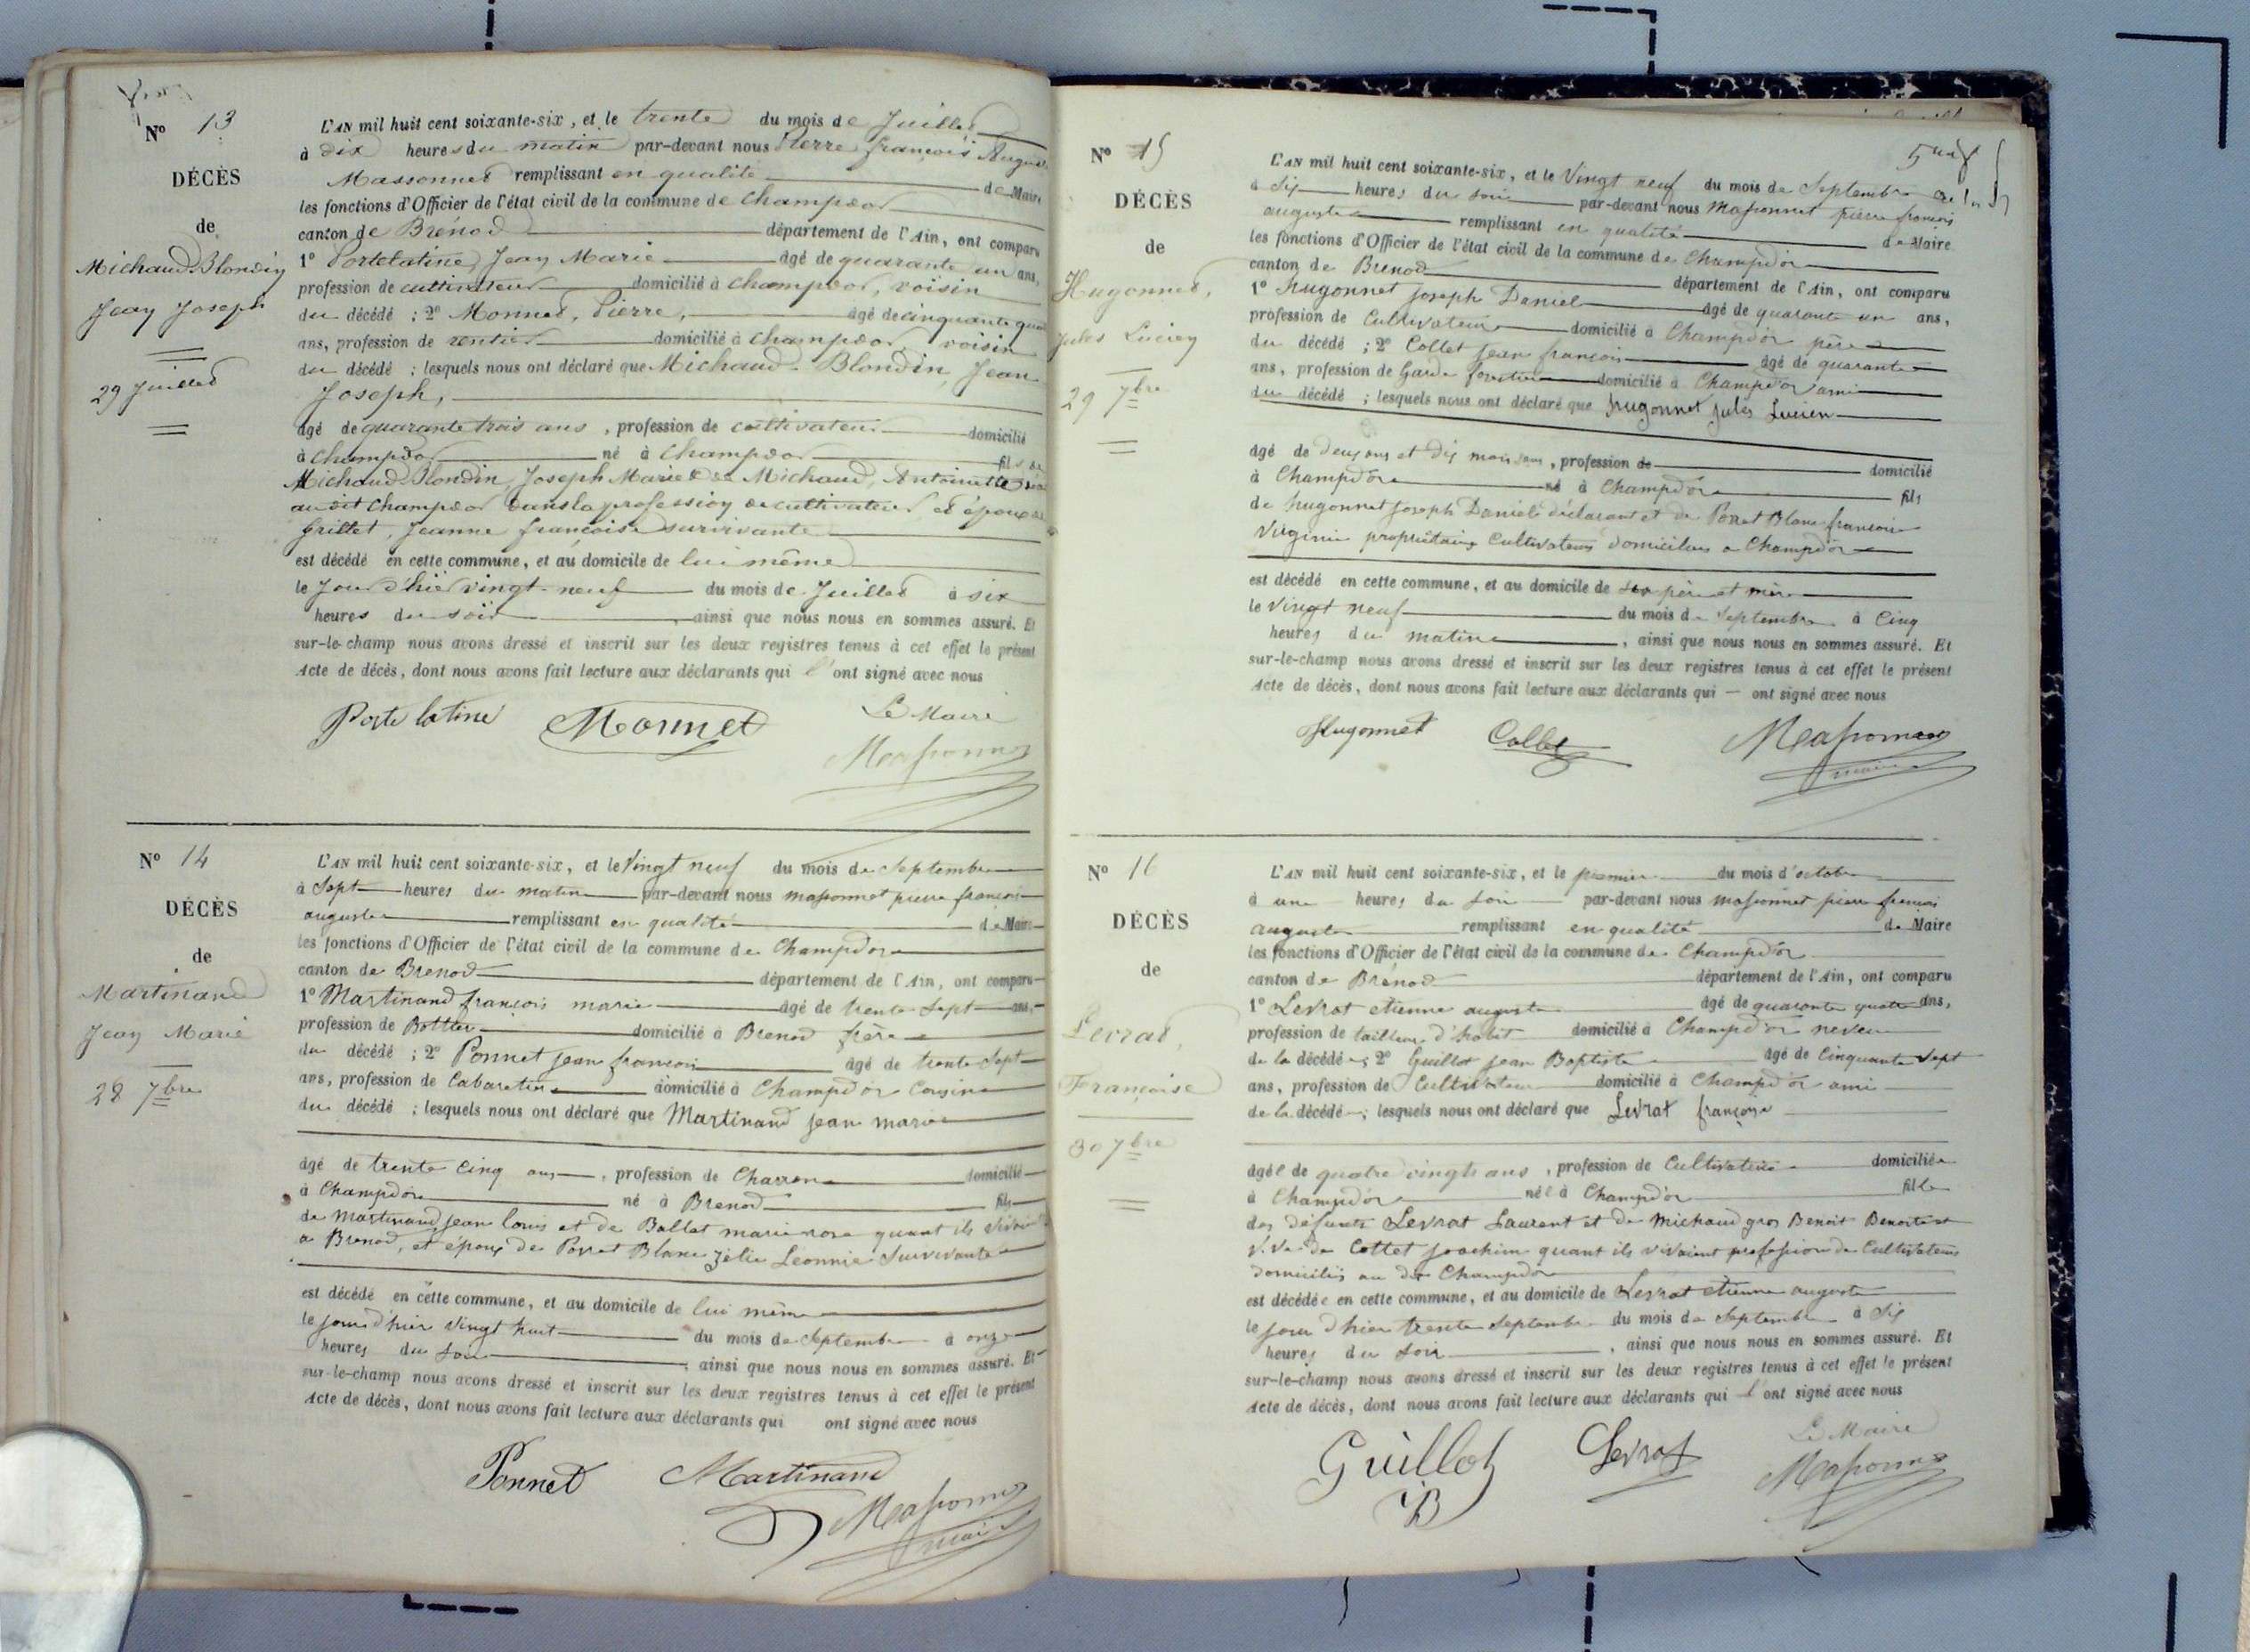 Nº 13
DÉCÈS
de
Michaud Blondin
Jean Joseph
29 Juillet
L'AN mil huit cent soixante-six, et le trente du mois de Juillet
à dix heures du matin par-devant nous Pierre françois Auguste
Massonnet remplissant en qualité de Maire
les fonctions d'Officier de l'état civil de la commune de Champdor
canton de Brénod département de l'Ain, ont comparu
1º Portelatine, Jean Marie âgé de quarante un ans,
profession de cultivateur domicilié à Champdor, voisin
du décédé ; 2º Monnet, Pierre, âgé de cinquante quatre
ans, profession de rentier domicilié à Champdor, voisin
du décédé ; lesquels nous ont déclaré que Michaud-Blondin, Jean
Joseph,
âgé de quarante trois ans, profession de cultivateur domicilié
à Champdor né à Champdor fils de
Michaud Blondin, Joseph Marie et de Michaud, Antoinette
au dit Champdor dans la profession de cultivateur et époux de
Grillet, Jeanne françoise survivante
est décédé en cette commune, et au domicile de lui même
le Jour d'hier vingt-neuf du mois de Juillet à six
heures du soir, ainsi que nous nous en sommes assuré. Et
sur-le-champ nous avons dressé et inscrit sur les deux registres tenus à cet effet le présent
Acte de décès, dont nous avons fait lecture aux déclarants qui l'ont signé avec nous
Porte latine Monnet Le Maire
Massonnet
Nº 14
DÉCÈS
de
Martinand
Jean Marie
28 7bre
L'AN mil huit cent soixante-six, et le Vingt neuf du mois de Septembre
à Sept heures du matin par-devant nous massonnet pierre françois
auguste remplissant en qualité de Maire
les fonctions d'Officier de l'état civil de la commune de Champdor
canton de Brenod département de l'Ain, ont comparu
1º Martinand françois marie âgé de trente Sept ans,
profession de Bottier domicilié à Brenod frère
du décédé ; 2º Ponnet jean françois âgé de trente Sept
ans, profession de Cabaretier domicilié à Champdor Cousin
du décédé ; lesquels nous ont déclaré que Martinand jean marie
âgé de trente Cinq ans, profession de Charron domicilié
à Champdor né à Brenod fils
de Martinand jean louis et de Ballet marie rose quant ils vivaient
a Brenod, et époux de Porret Blanc Zélie Leonnie Survivante
est décédé en cette commune, et au domicile de lui même
le jour d'hier Vingt huit du mois de Septembre à onze
heures du Soir, ainsi que nous nous en sommes assuré. Et
sur-le-champ nous avons dressé et inscrit sur les deux registres tenus à cet effet le présent
Acte de décès, dont nous avons fait lecture aux déclarants qui ont signé avec nous
Ponnet Martinand
Massonnet
maire
Nº 15
DÉCÈS
de
Hugonnet,
Jules Lucien
29 7bre
L'AN mil huit cent soixante-six, et le Vingt neuf du mois de Septembre
à Six heures du soir par-devant nous Massonnet pierre françois
auguste remplissant en qualité de Maire
les fonctions d'Officier de l'état civil de la commune de Champdor
canton de Brenod département de l'Ain, ont comparu
1º hugonnet joseph Daniel âgé de quarante un ans,
profession de Cultivateur domicilié à Champdor père
du décédé ; 2º Collet jean françois âgé de quarante
ans, profession de Garde forestier domicilié à Champdor ami
du décédé ; lesquels nous ont déclaré que hugonnet jules Lucien
âgé de deux ans et dix mois ans, profession de domicilié
à Champdor né à Champdor fils
de hugonnet joseph Daniel déclarant et de Porret Blanc françoise
Virginie propriétaires Cultivateurs domiciliés a Champdor
est décédé en cette commune, et au domicile de ses père et mère
le Vingt neuf du mois de Septembre à Cinq
heures du matin, ainsi que nous nous en sommes assuré. Et
sur-le-champ nous avons dressé et inscrit sur les deux registres tenus à cet effet le présent
Acte de décès, dont nous avons fait lecture aux déclarants qui — ont signé avec nous
Hugonnet Collet Massonnet
maire
Nº 16
DÉCÈS
de
Levrat,
Françoise
30 7bre
L'AN mil huit cent soixante-six, et le premier du mois d'octobre
à une heures du soir par-devant nous massonnet pierre françois
auguste remplissant en qualité de Maire
les fonctions d'Officier de l'état civil de la commune de Champdor
canton de Brénod département de l'Ain, ont comparu
1º Levrat etienne auguste âgé de quarante quatre ans,
profession de tailleur d'habit domicilié à Champdor neveu
de la décédée ; 2º Guillot jean Baptiste âgé de Cinquante Sept
ans, profession de Cultivateur domicilié à Champdor ami
de la décédé ; lesquels nous ont déclaré que Levrat françoise
âgée de quatre vingts ans, profession de Cultivatrice domiciliée
à Champdor née à Champdor fille
des défunts Levrat Laurent et de Michaud gros Benoit Benoite et
V.ve de Cottet joachim quant ils vivaient profession de Cultivateurs
domiciliés au dit Champdor
est décédée en cette commune, et au domicile de Levrat etienne auguste
le jour d'hier trente Septembre du mois de Septembre à Six
heures du Soir, ainsi que nous nous en sommes assuré. Et
sur-le-champ nous avons dressé et inscrit sur les deux registres tenus à cet effet le présent
Acte de décès, dont nous avons fait lecture aux déclarants qui l'ont signé avec nous
Guillot Levrat Le Maire
JB Massonnet